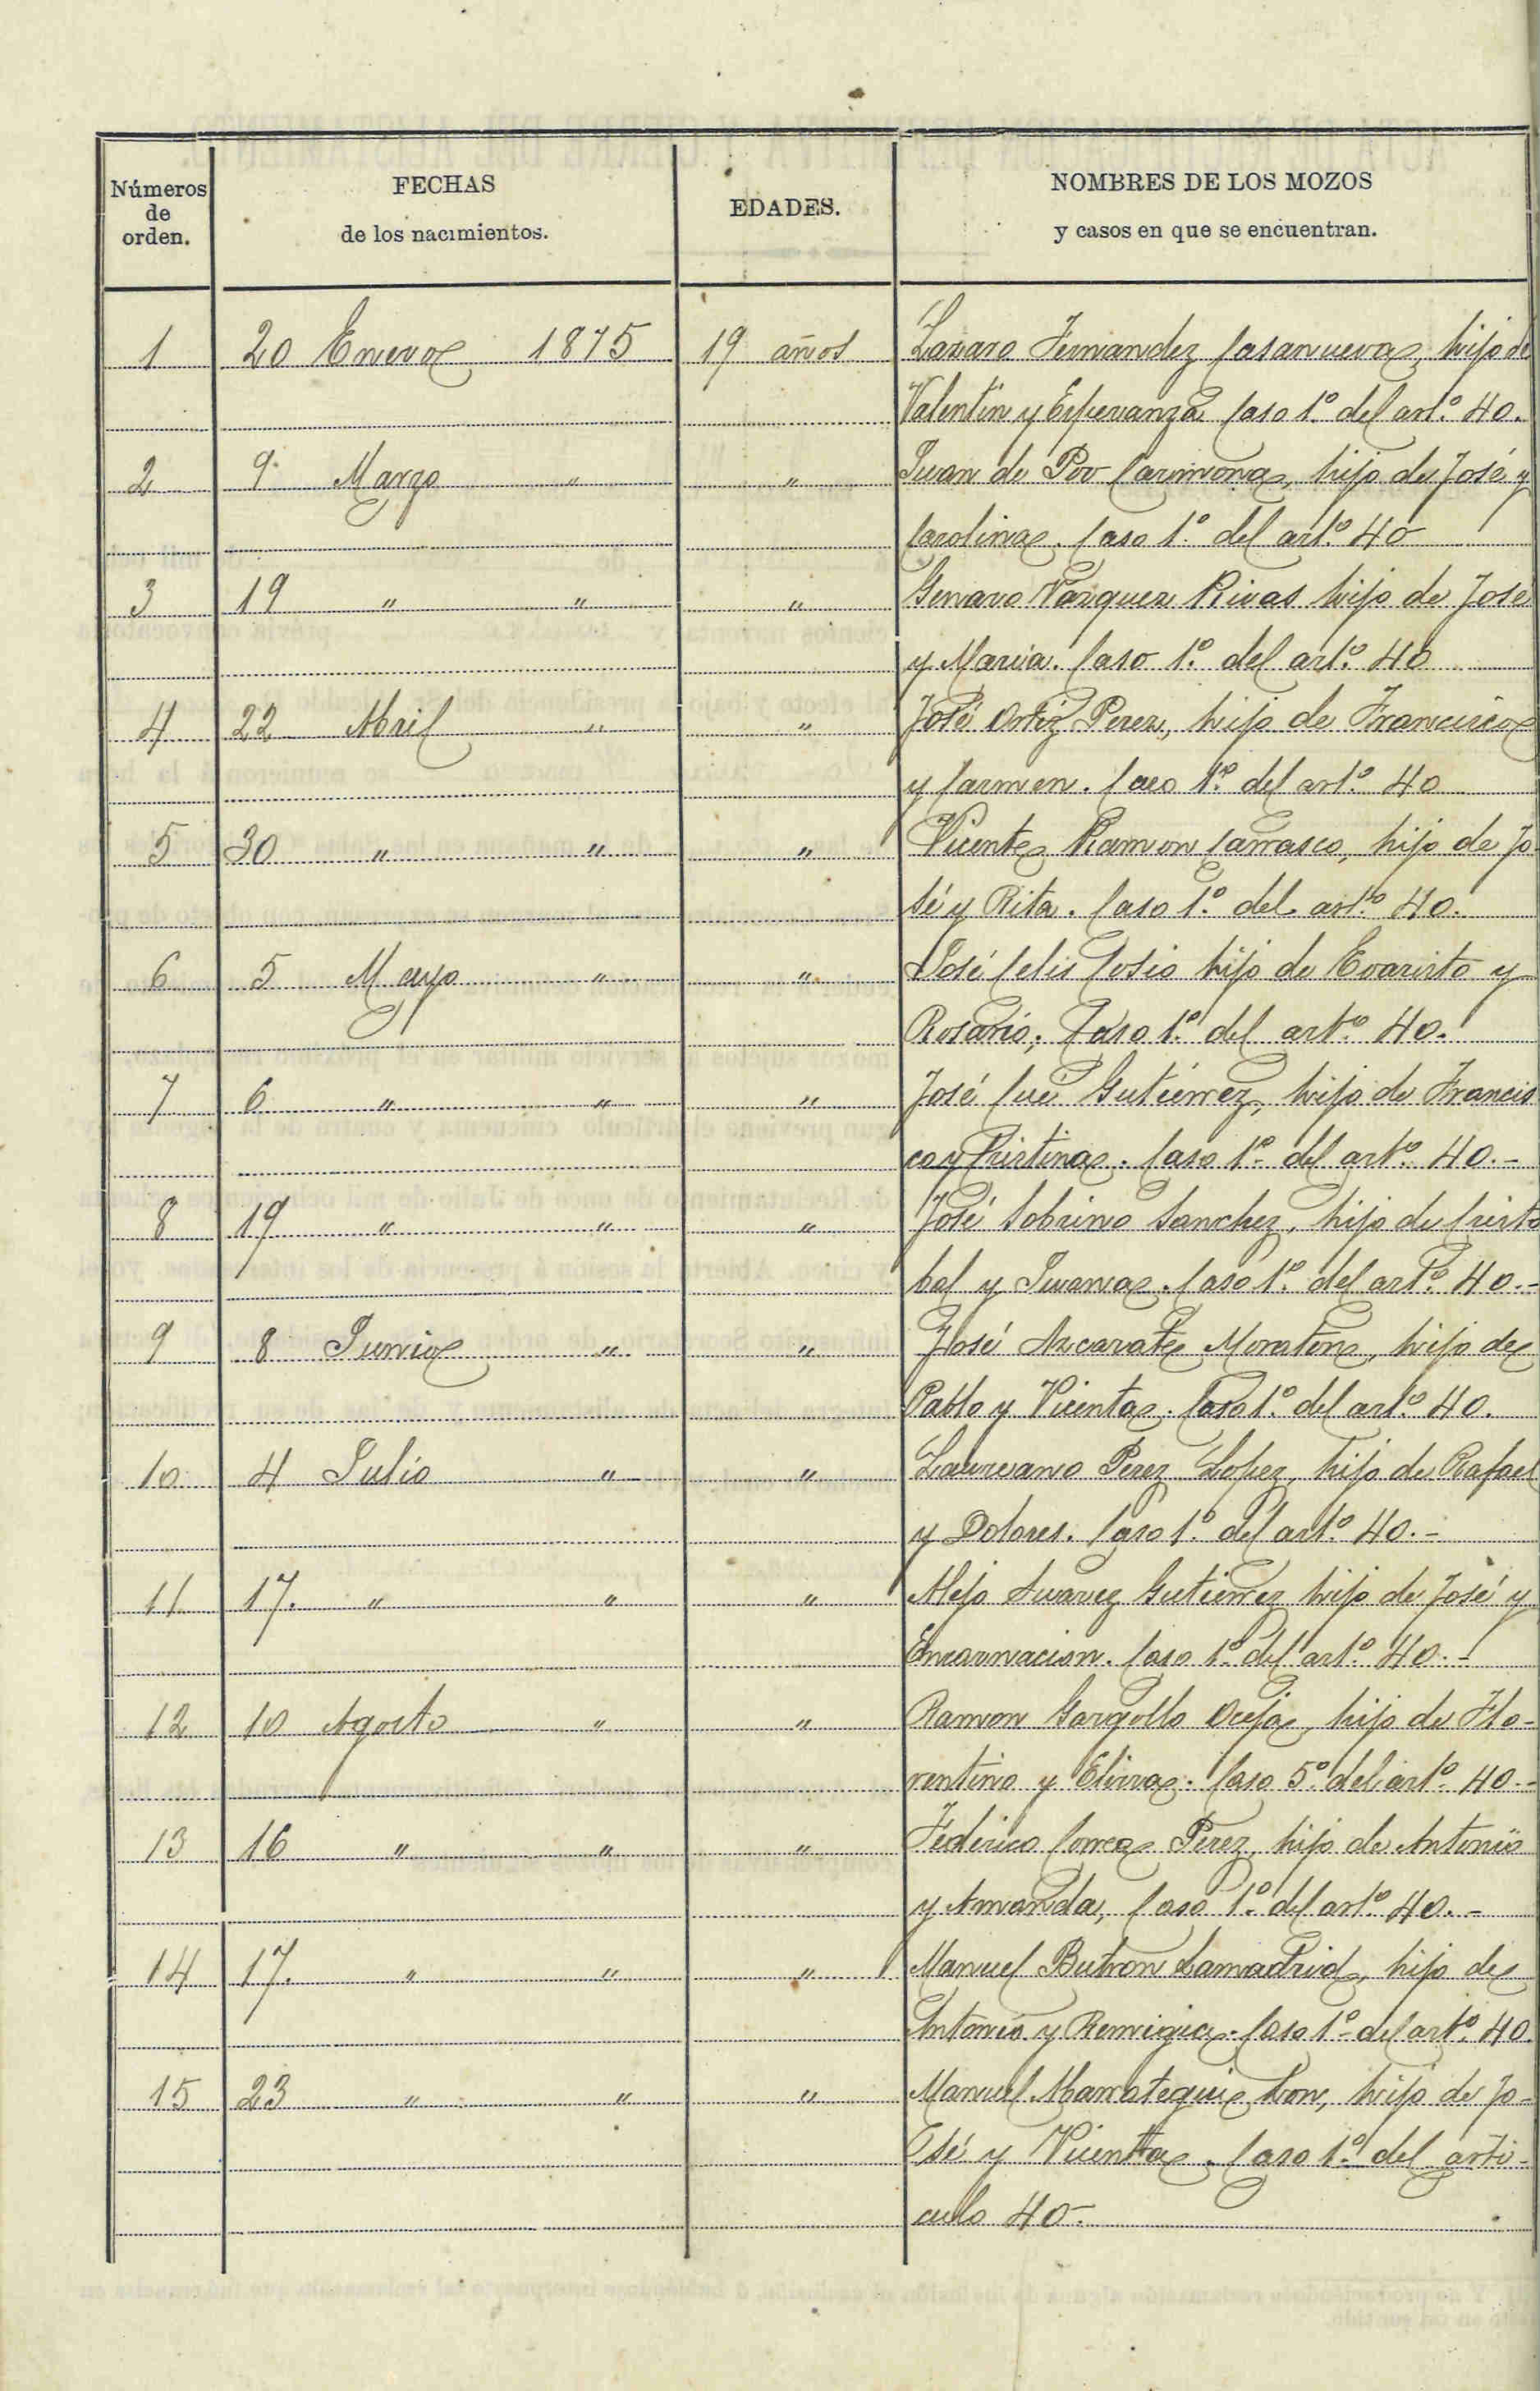 Números de orden.
FECHAS de los nacimientos.
EDADES.
NOMBRES DE LOS MOZOS y casos en que se encuentran.
1 20 Enero 1875 19 años Lazaro Fernandez Casanueva, hijo de
Valentin y Esperanza Caso 1º del artº 40.
2 9 Marzo " " Juan de Poo Carmona, hijo de José y
Carolina. Caso 1º del artº 40
3 19 " " " Genaro Vazquez Rivas hijo de José
y Maria. Caso 1º del artº 40
4 22 Abril " " José Ortiz Perez, hijo de Francisco
y Carmen. Caso 1º del artº 40
5 30 " " " Vicente Ramon Carrasco, hijo de Jo-
sé y Rita. Caso 1º del artº 40.
6 5 Mayo " " José Celis Cosio hijo de Evaristo y
Rosario; Caso 1º del artº 40.
7 6 " " " José Cué Gutierrez, hijo de Francis
co y Cristina. Caso 1º del artº 40.-
8 19 " " " José Sobrino Sanchez, hijo de Cristo
bal y Juana. Caso 1º del artº 40.-
9 8 Junio " " José Azcarate Moraton, hijo de
Pablo y Vicenta. Caso 1º del artº 40.
10 4 Julio " " Laureano Perez Lopez, hijo de Rafael
y Dolores. Caso 1º del artº 40.-
11 17. " " " Alejo Suarez Gutierrez hijo de José y
Encarnacion. Caso 1º del artº 40.-
12 10 Agosto " " Ramon Gargollo Oceja, hijo de Flo-
rentino y Elvira. Caso 5º del artº 40.-
13 16 " " " Federico Correa Perez, hijo de Antonio
y Amanda, Caso 1º del artº 40.-
14 17. " " " Manuel Butron Lamadrid, hijo de
Antonio y Remigia. Caso 1º del artº 40.
15 23 " " " Manuel Marrategui hijo de Jo-
sé y Vicenta. Caso 1º del arti-
culo 40.